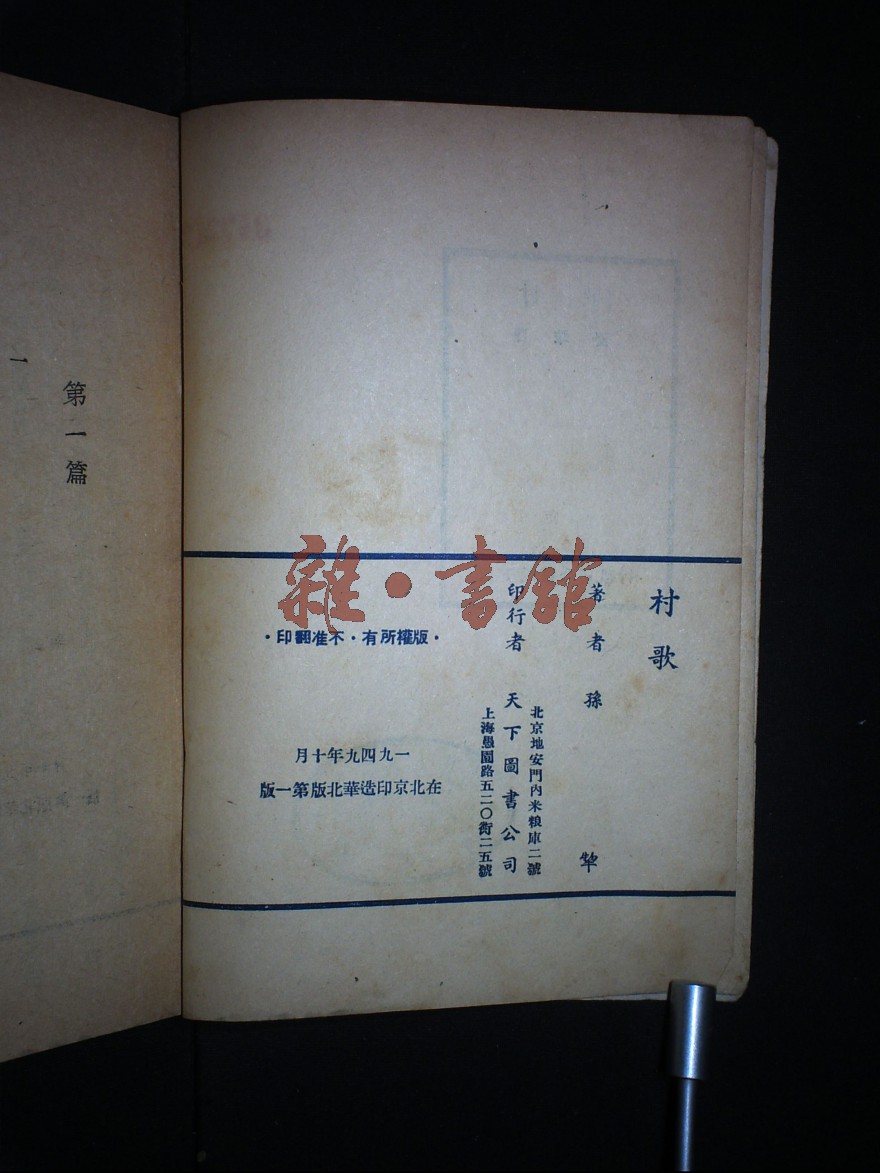 村歌
著者 孫犂
印行者 天下圖書公司
北京地安門內米粮庫二號
上海愚園路五二〇街二五號
・版權所有・不准翻印・
一九四九年十月
在北京印造華北版第一版
第一篇
一
雜・書館